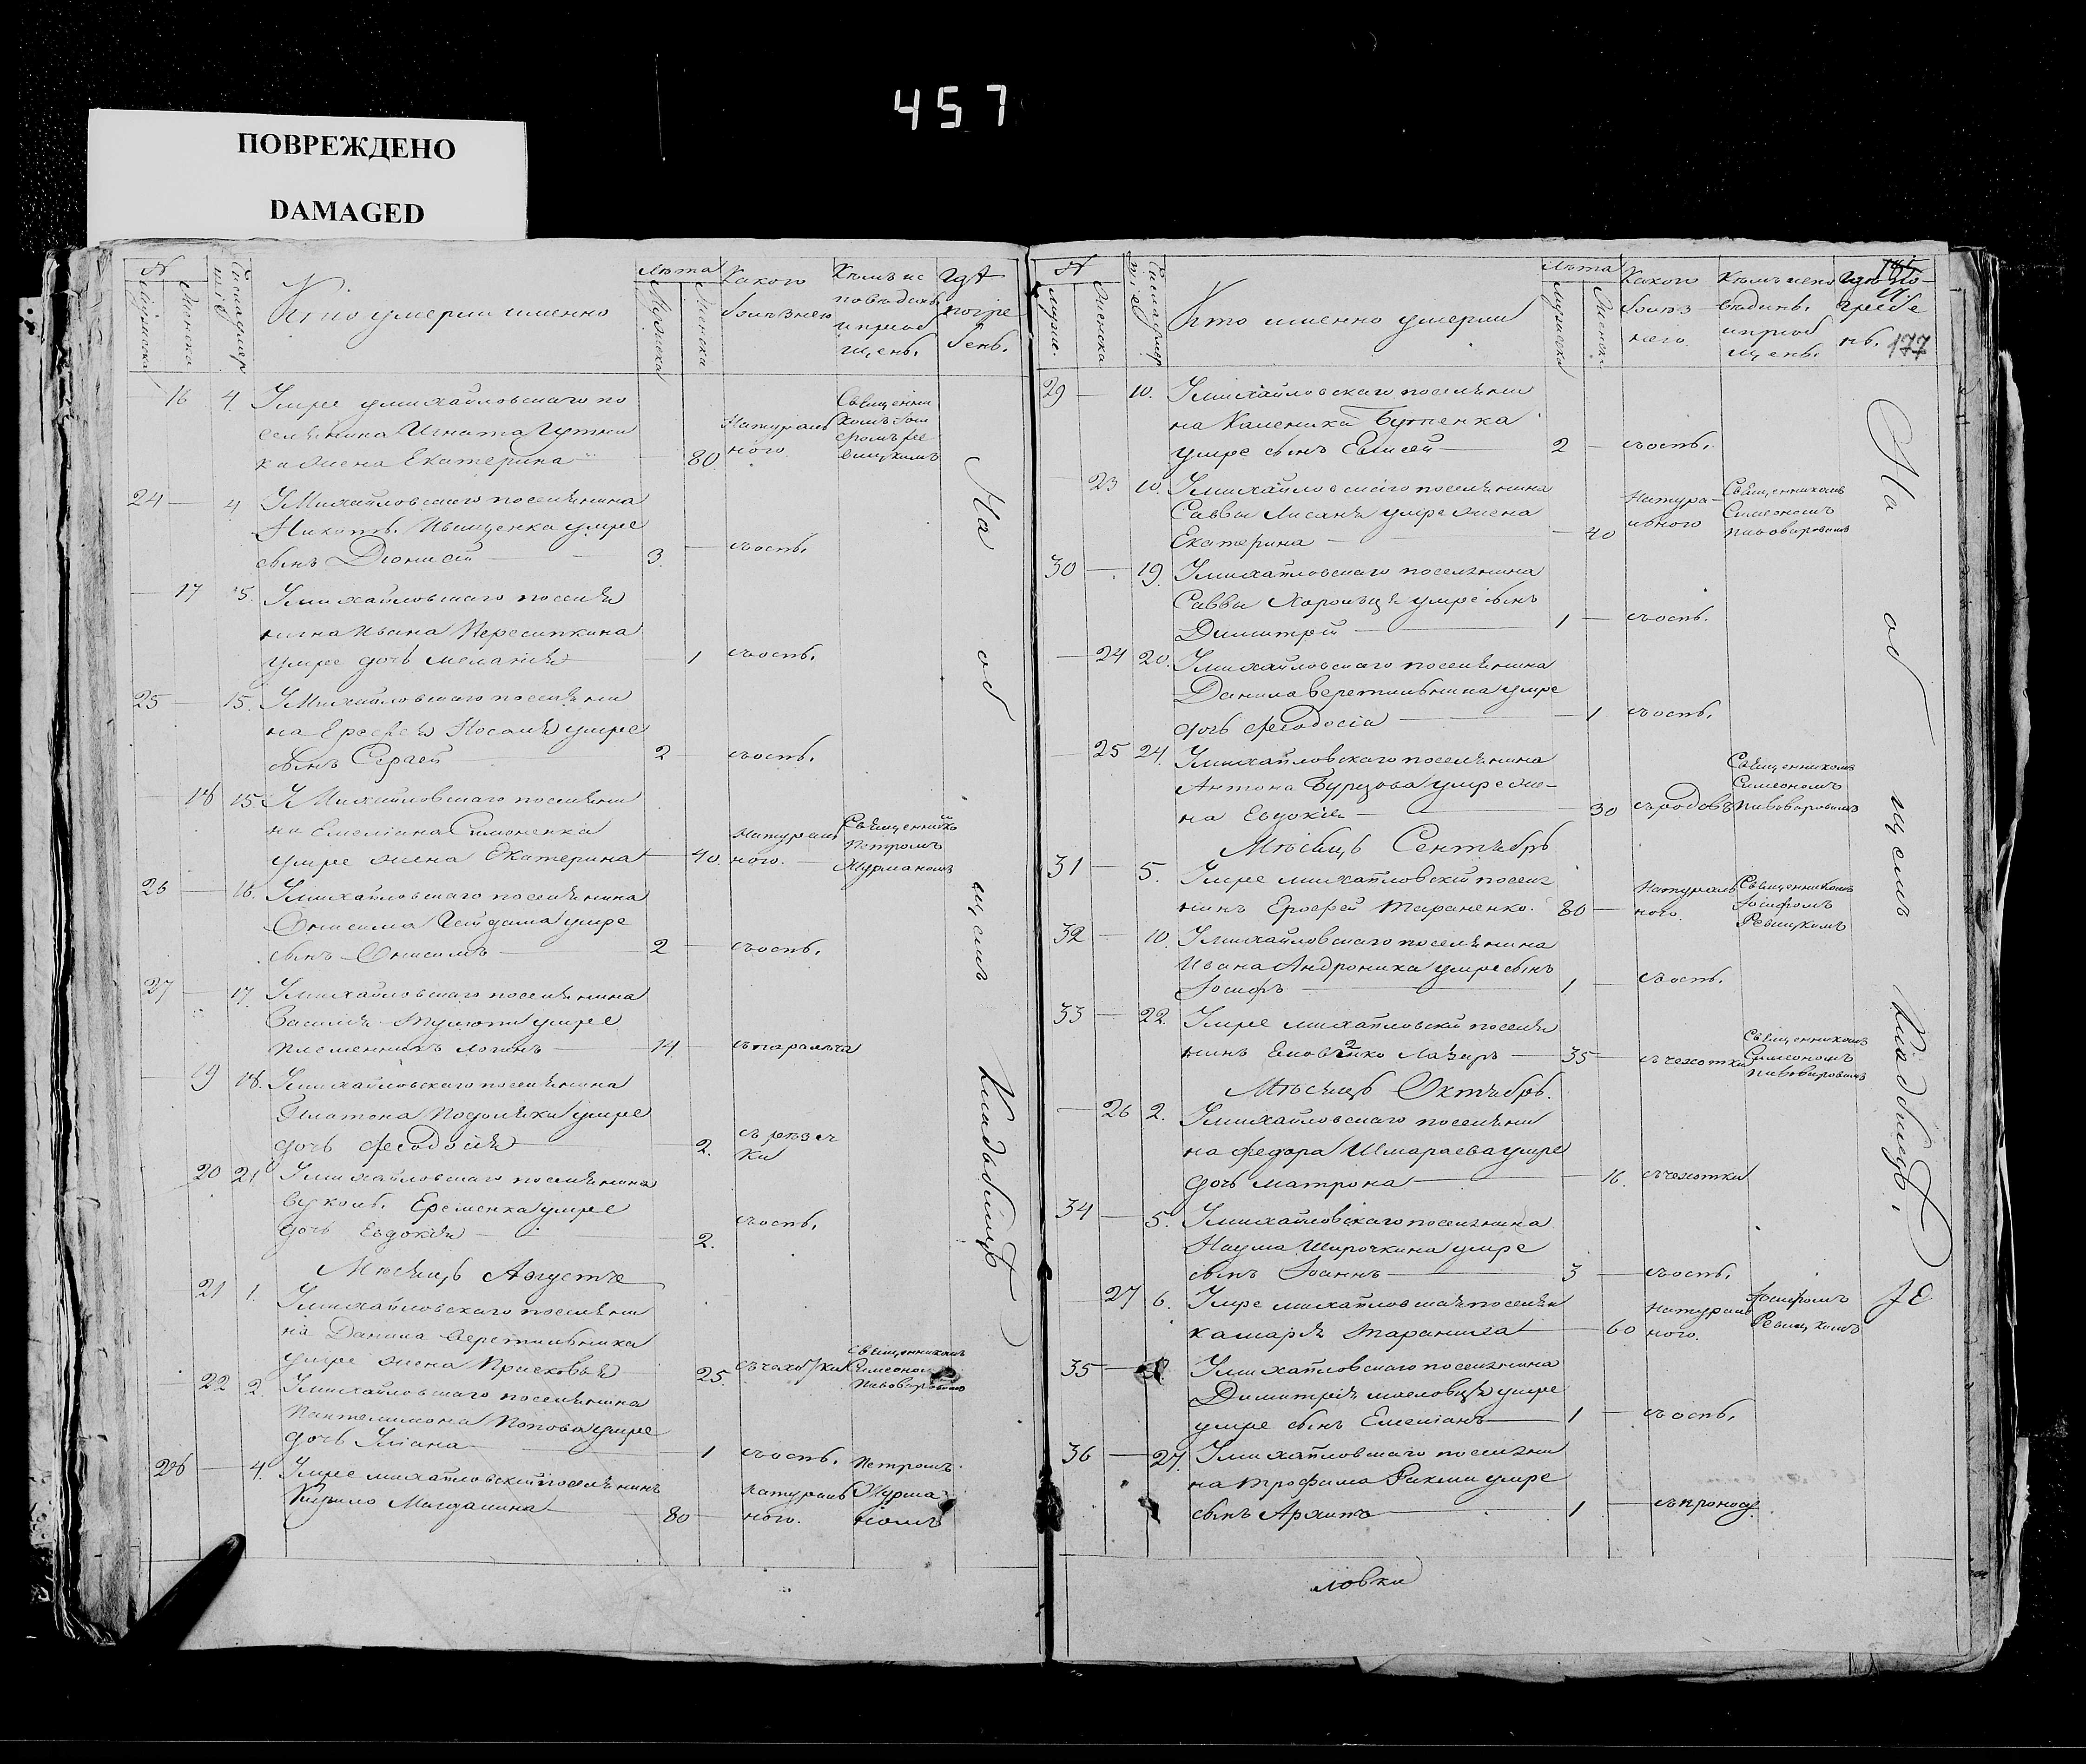 457
ПОВРЕЖДЕНО
DAMAGED
№
Мужеска
Женска
Кто умерли именно
Лѣта
Мужеска
Женска
Какого
болѣзнею
Кѣмъ ис
повѣданъ
и приоб
щенъ.
гдѣ
погре
бенъ.
16 4. Умре у михайловскаго по
селянина Игната Гутни
ка жена Екатерина 80
Натураль
ного.
Священни
комъ Іои
сифомъ Ре
вицкимъ
24 4 У Михайловскаго поселянина
Никиты Ивищенка умре
сынъ Дионисій 3. съоспы.
17 5. У михайловскаго поселя
нина Ивана Пересипкина
умре дочь Меланія 1 съоспы.
25 15. У Михайловскаго поселяни
на Ерофея Носаля умре
сынъ Сергей 2 съоспы.
18 15. У Михайловскаго поселяни
на Емеліана Симоненка
умре жена Екатерина 40.
Натураль
ного.
Священнико
Петромъ
Журманомъ
26 16. У михайловскаго поселянина
Онисима Гейдаша умре
сынъ Онисимъ 2 съоспы.
27 17. У михайловскаго поселянина
Василія умре
племенникъ Логинъ 14. съпаралича
19 18. У михайловскаго поселянина
Платона Подоляки умре
дочь Феодосія 2.
съ резач
ки
20 21 У михайловскаго поселянина
Вуколы Еременка умре
дочь Евдокія 2. съоспы.
Мѣсяцъ Августъ
21 1. У михайловскаго поселяни
на Данила Веретильника
умре жена Присковья 25. съчахотки
Священникомъ
Симеономъ
Пивоваровымъ
22 2. У михайловскаго поселянина
Пантелимона Попова умре
дочь Уліана 1 съоспы.
28 4. Умре михайловскій поселянинъ
Кирило 80
Натураль
ного.
Петромъ
Журма
номъ
На об щемъ Кладбищѣ
№
Мужес.
Женска
Кто именно умерли
Лѣта
Мужеска
Женска
Какого
болѣз
нею.
Кѣмъ испо
вѣданъ.
и приоб
щенъ.
гдѣ по
гребе
нъ.
177
29 10. У михайловскаго поселяни
на Каленика Бутенка
умре сынъ Елисей 2 съоспы.
23 10. У михайловскаго поселянина
Саввы Лисаня умре жена
Екатерина 40
Натура
льного
Священникомъ
Симеономъ
Пивоваровымъ
30 19. У михайловскаго поселянина
Саввы умре сынъ
Димитрій 1 съоспы.
24 20. У михайловскаго поселянина
Данила Веретильника умре
дочь Феодосіа 1 съоспы.
25 24. У михайловскаго поселянина
Антона Бурцова умре же-
на Евдокія 30 съродовъ
Священникомъ
Симеономъ
Пивоваровымъ
Мѣсяцъ Сентябрь
31 5. Умре михайловскій поселя
нинъ Ерофей Тараненко. 80
Натураль
ного.
Священникомъ
Іосифомъ
Ревицкимъ
32 10. У михайловскаго поселянина
Ивана Андроника умре сынъ
Іосифъ 1 съоспы.
33 22. Умре михайловскій поселя
нинъ Лазарь 35 съчехотки
Священникомъ
Симеономъ
Пивоваровымъ
Мѣсяцъ Октябрь.
26 2. У михайловскаго поселяни
на Федора Шмараева умре
дочь Матрона 16. съчехотки
34 5. У михайловскаго поселянина
Наума Широчкина умре
сынъ Іоаннъ 3 съоспы.
27 6. Умре михайловская поселян
ка Марія Тараниха 60
Натураль
ного.
Іосифомъ
Ревицкимъ
35 У михайловскаго поселянина
Димитрія умре
умре сынъ Емеліанъ 1 съоспы.
36 27. У михайловскаго поселяни
на Трофима умре
сынъ Архипъ 1 съпроносу.
На об щемъ Кладбищѣ.
ловки